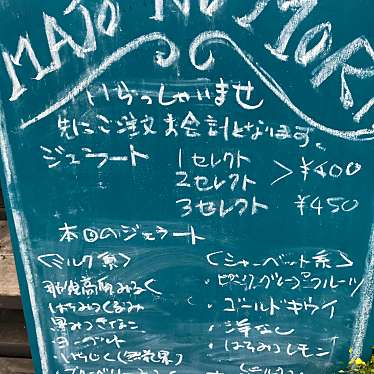 MAJO NO MORI
いらっしゃいませ
先にご注文お会計となります。
ジェラート
1セレクト
2セレクト > ¥400
3セレクト ¥450
本日のジェラート
<ミルク系>
那須高原みるく
はちみつくるみ
黒みつきなこ
ヨーグルト
<シャーベット系>
・ピンクグレープフルーツ
・ゴールドキウイ
・洋なし
・はちみつレモン